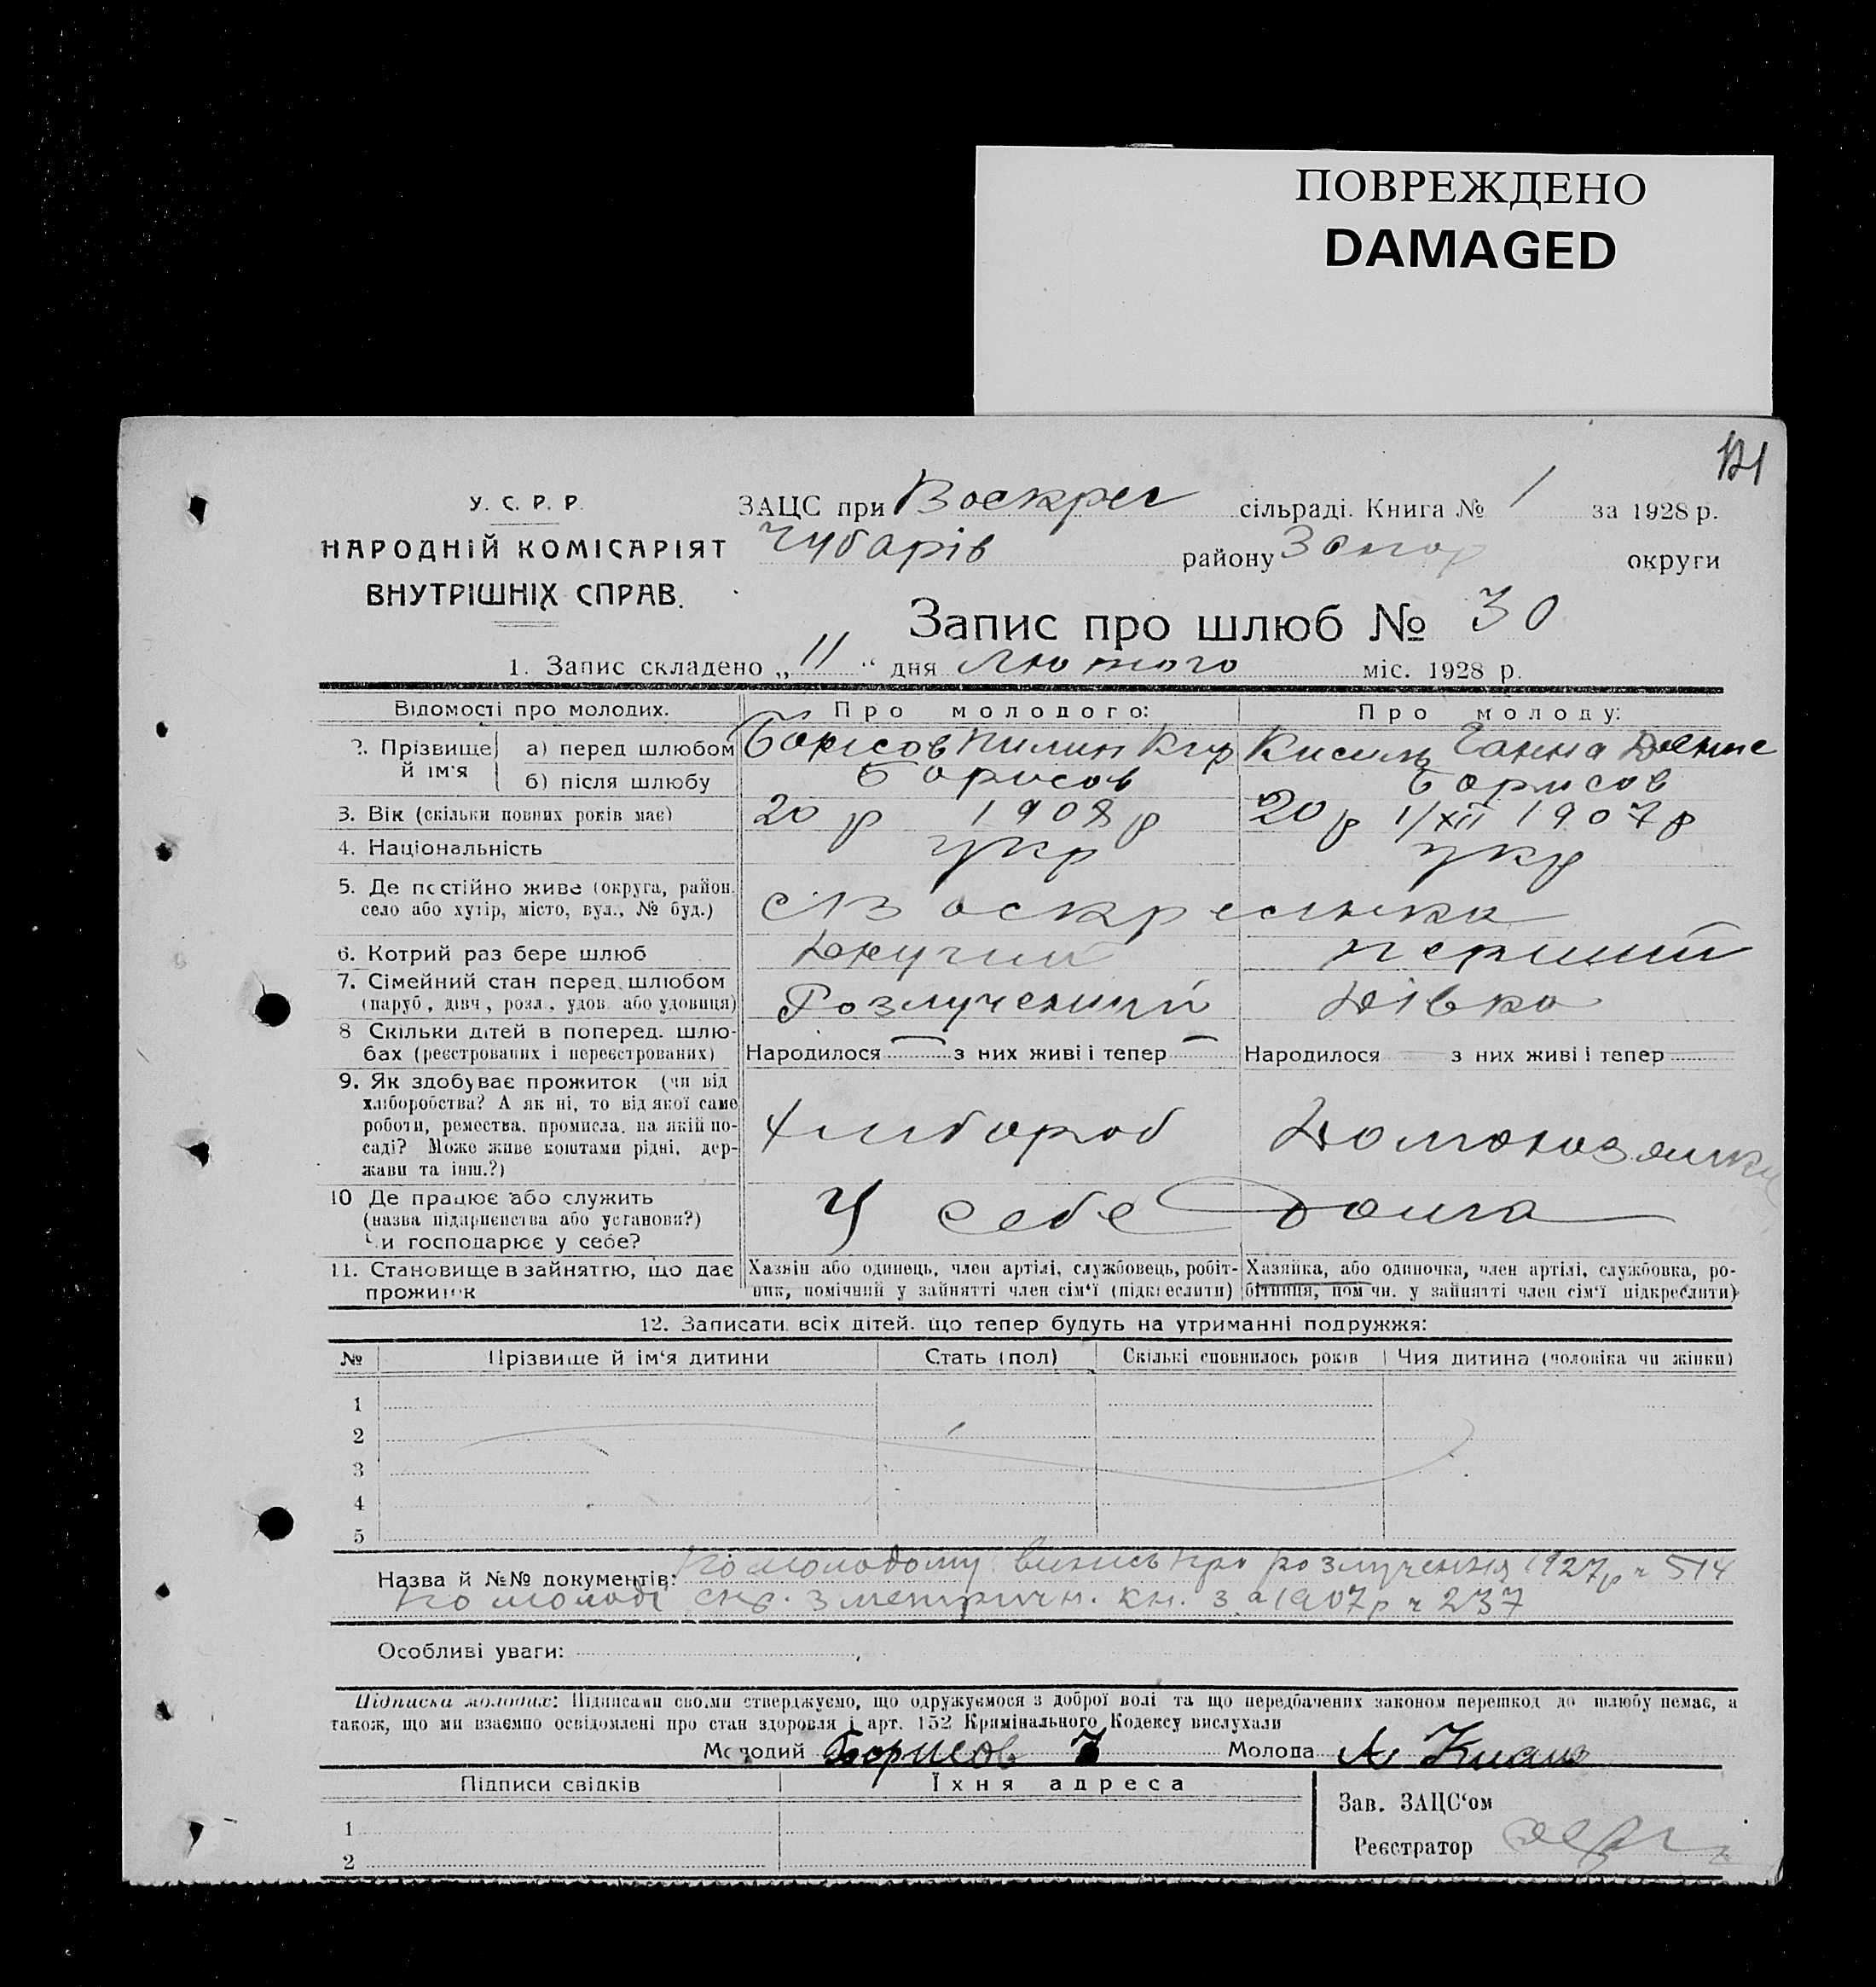 ПОВРЕЖДЕНО
DAMAGED
У. С. Р. Р.
НАРОДНІЙ КОМІСАРІЯТ
ВНУТРІШНІХ СПРАВ.
ЗАЦС при Воскрес сільраді. Книга № 1 за 1928 р.
Чубарів району Запор округи
Запис про шлюб № 30
1. Запис складено „ 11 “ дня Лютого міс. 1928 р.
Відомості про молодих. Про молодого: Про молоду:
2. Прізвище й ім'я а) перед шлюбом Борисов Пилип Кир Кисиль Ганна Денис
б) після шлюбу Борисов Борисов
3. Вік (скільки повних років має) 20 р 1908 р 20 р 1/XII 1907 р
4. Національність укр укр
5. Де постійно живе (округа, район.
село або хутір, місто, вул., № буд.) с Воскресенка
6. Котрий раз бере шлюб Другий перший
7. Сімейний стан перед шлюбом
(паруб, дівч, розл, удов або удовиця) Розлучений Дівка
8 Скільки дітей в поперед. шлю-
бах (реєстрованих і нереєстрованих) Народилося — з них живі і тепер — Народилося — з них живі і тепер
9. Як здобуває прожиток (чи від
хліборобства? А як ні, то від якої саме
роботи, ремества, промисла, на якій по-
саді? Може живе коштами рідні, дер-
жави та інш.?) Хлібороб Домохазяйка
10 Де працює або служить
(назва підприємства або установи?)
Чи господарює у себе? У себе дома
11. Становище в зайняттю, що дає
прожиток
Хазяїн або одинець, член артілі, службовець, робіт-
ник, помічний у зайнятті член сім‘ї (підкреслити)
Хазяйка, або одиночка, член артілі, службовка, ро-
бітниця, пом чн. у зайнятті член сім‘ї підкреслити)
12. Записати всіх дітей, що тепер будуть на утриманні подружжя:
№ Прізвище й ім‘я дитини Стать (пол) Скількі сповнилось років Чия дитина (чоловіка чи жінки)
1
2
3
4
5
Назва й №№ документів: По молодому випись про розлучення 1927 р ч 514
По молоді з метричн. кн. за 1907 р ч 237
Особливі уваги:
Підписка молодих: Підписами своїми стверджуємо, що одружуємося з доброї волі та що передбачених законом перешкод до шлюбу немає, а
також, що ми взаємно освідомлені про стан здоровля і арт. 152 Кримінального Кодексу вислухали
Молодий Борисов Молода А Кисиль
Підписи свідків Їхня адреса
Зав. ЗАЦС‘ом
1
Реєстратор
2